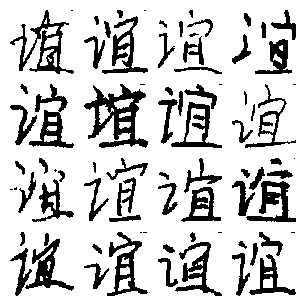 谊谊谊谊
谊谊谊谊
谊谊谊谊
谊谊谊谊